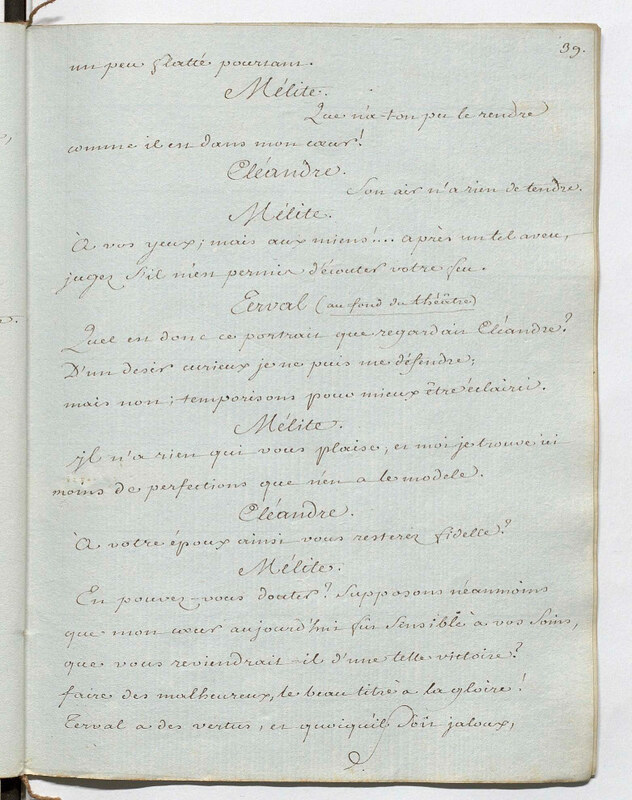 39.
un peu flatté pourtant.
Mélite.
Que n'a-t-on pu le rendre
comme il est dans mon cœur!
Cléandre.
Son air n'a rien de tendre.
Mélite.
À vos yeux; mais aux miens!... après un tel aveu,
jugez s'il m'est permis d'écouter votre feu.
Terval (au fond du théâtre)
Quel est donc ce portrait que regardait Cléandre?
D'un desir curieux je ne puis me défendre;
mais non; temporisons pour mieux être éclairci.
Mélite.
il n'a rien qui vous plaise, et moi je trouve ici
moins de perfections que n'en a le modele.
Cléandre.
À votre époux ainsi vous resterez fidelle?
Mélite.
En pouvez-vous douter? Supposons néanmoins
que mon cœur aujourd'hui fût sensible à vos soins,
que vous reviendrait-il d'une telle victoire?
faire des malheureux, le beau titre à la gloire!
Terval a des vertus, et quoiqu'il soit jaloux,